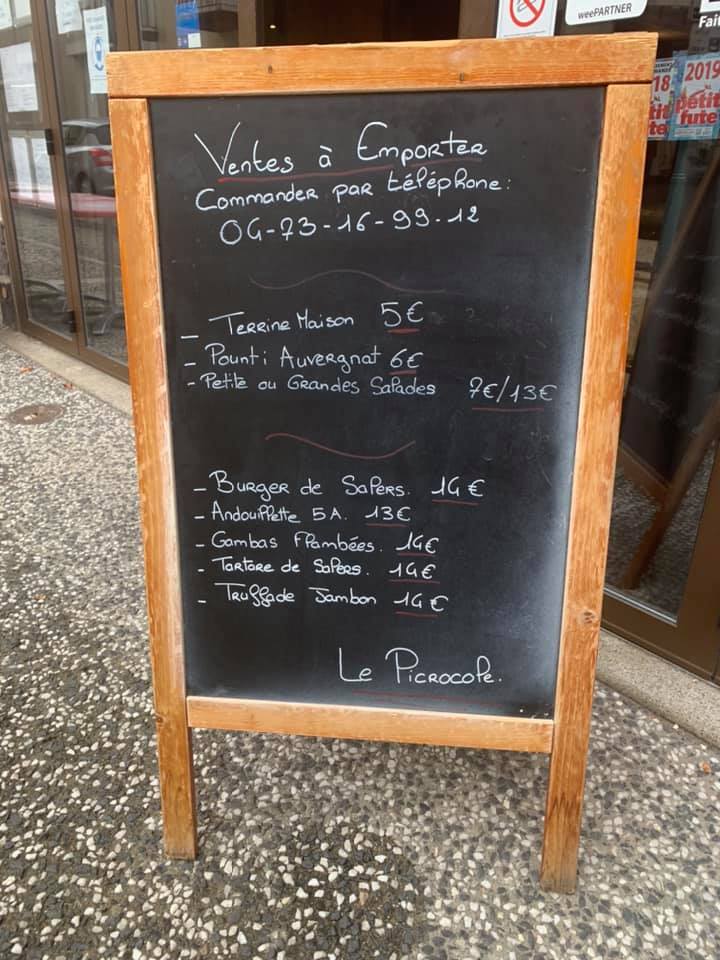 weePARTNER
Fait
2019
18
petit
futé
Ventes à Emporter
Commander par téléphone:
04-73-16-99-12
- Terrine Maison 5€
- Pounti Auvergnat 6€
- Petite ou Grandes Salades 7€/13€
- Burger de Salers. 14€
- Andouillette 5A. 13€
- Gambas Flambées. 14€
- Tartare de Salers. 14€
- Truffade Jambon 14€
Le Picrocole.